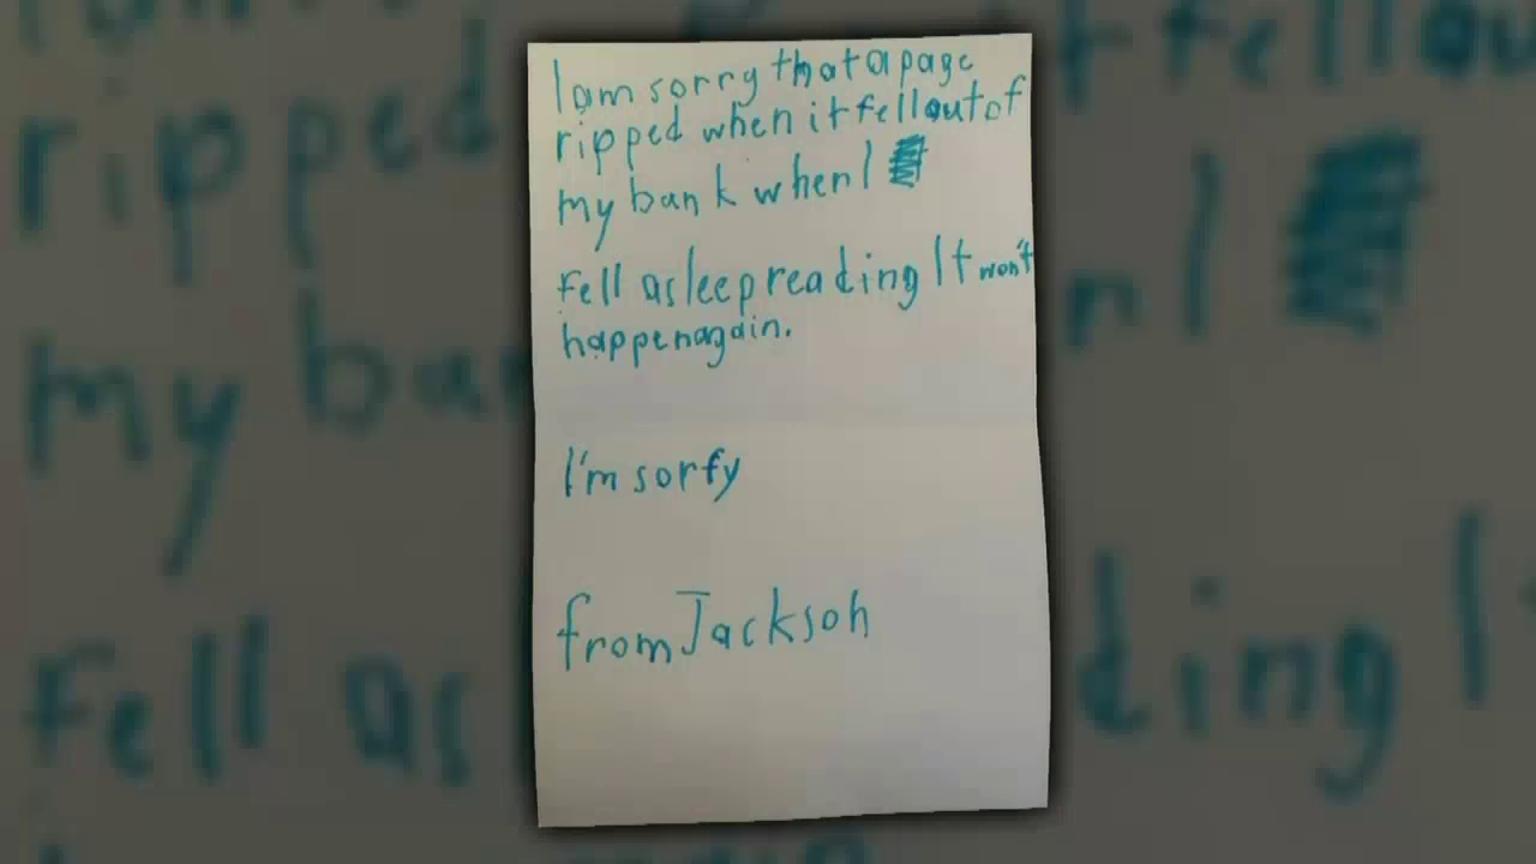 I am sorry that a page
ripped when it fell out of
my bank when I
Fell asleep reading It won't
happen again.
I'm sorry
from Jackson